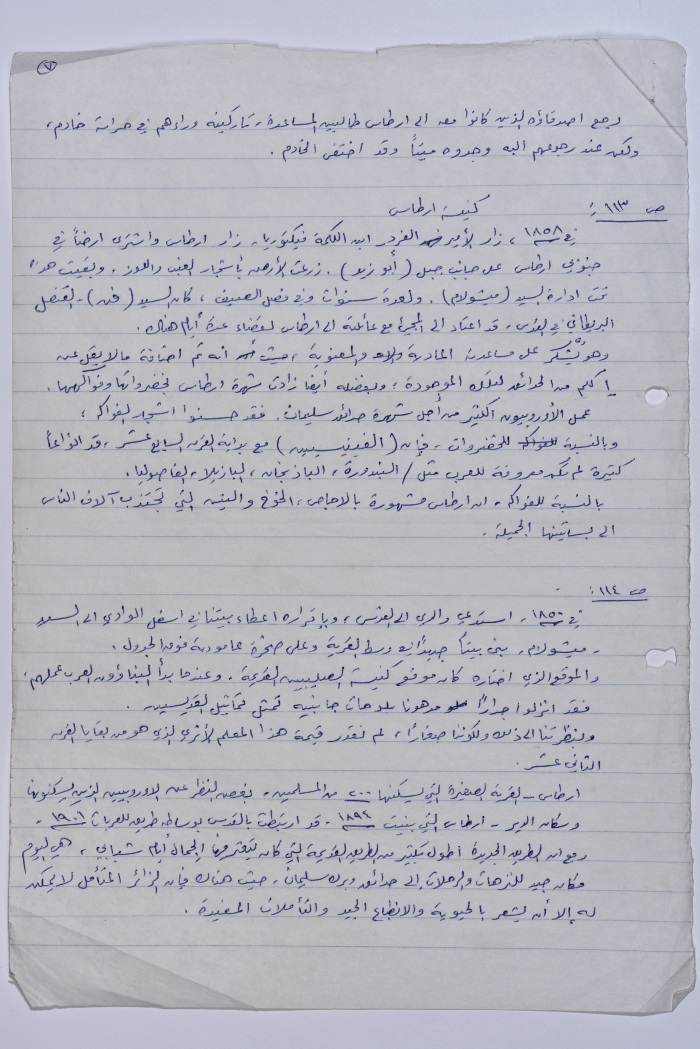 ٧
رجع اصدقاؤه الذين كانوا معه الى ارطاس طالبين المساعدة، تاركينه وراءهم في حراسة خادم،
ولكن عند رجوعهم اليه وجدوه ميتاً وقد اختفى الخادم.
ص ١١٣:
كنيسة ارطاس
في ١٨٥٨، زار الأمير الفرد ابن الملكة فيكتوريا، زار ارطاس واشترى ارضاً في
جنوبي ارطاس على جانب جبل (أبو زيد). زرعت الأرض بأشجار العنب واللوز. وبقيت هذه
تحت ادارة السيد (ميشولام). ولعدة سنوات وفي فصل الصيف، كان السيد (فن) - القنصل
البريطاني في القدس، قد اعتاد الى المجيء مع عائلته الى ارطاس لقضاء عدة أيام هناك.
وهو يُشكر على مساعدته المادية والمعنوية، حيث أنه تم اضافة ما لا يقل عن
إكم من الحدائق لتلك الموجودة، وبفضله أيضا زادت شهرة ارطاس بخضرواتها وفواكهها.
عمل الأوروبيون الكثير من أجل شهرة حدائق سليمان. فقد حسنوا اشجار الفواكه،
وبالنسبة للخضروات، فإن (الفينيسيين) مع بداية القرن السابع عشر، قد انواعاً
كثيرة لم تكن معروفة للعرب مثل / البندورة، الباذنجان، البازيلا، الفاصوليا.
بالنسبة للفواكه، ان ارطاس مشهورة بالاجاص، الخوخ والتين التي تجتذب آلاف الناس
الى بساتينها الجميلة.
ص ١١٤:
في ١٨٥٠، استدعي والدي الى القدس، وبإقراره اعطاء بيتنا في اسفل الوادي الى السيد
- ميشولام، بنى بيتاً جديداً في وسط القرية وعلى صخرة عامودية فوق الجدول.
والموقع الذي اختاره كان موقع كنيسة الصليبيين القديمة. وعندما بدأ البناؤون العرب عملهم،
فقد انزلوا جداراً مدهونا بلوحات جانبية تمثل تماثيل القديسين.
وبنظرتنا الى ذلك ولكوننا صغاراً، لم نقدر قيمة هذا المعلم الأثري الذي هو من بقايا القرن
الثاني عشر.
ارطاس - القرية الصغيرة التي يسكنها ٢٠٠ من المسلمين، بغض النظر عن الاوروبيين الذين يسكنونها
وسكان الدير - ارطاس التي بنيت ١٨٩٤ - قد ارتبطت بالقدس بوساطة طريق للعربات ١٩٠٦ -
ومع ان الطريق الجديدة اطول بكثير من الطريق القديمة التي كان يخترقها الجمال أيام شبابي، هي اليوم
مكان جيد للنزهات والرحلات إلى حدائق وبرك سليمان، حيث هناك فإن الزائر المتأمل لا يمكن
له إلا أن يشعر بالحيوية والانطباع الجيد والتأملات المفيدة.